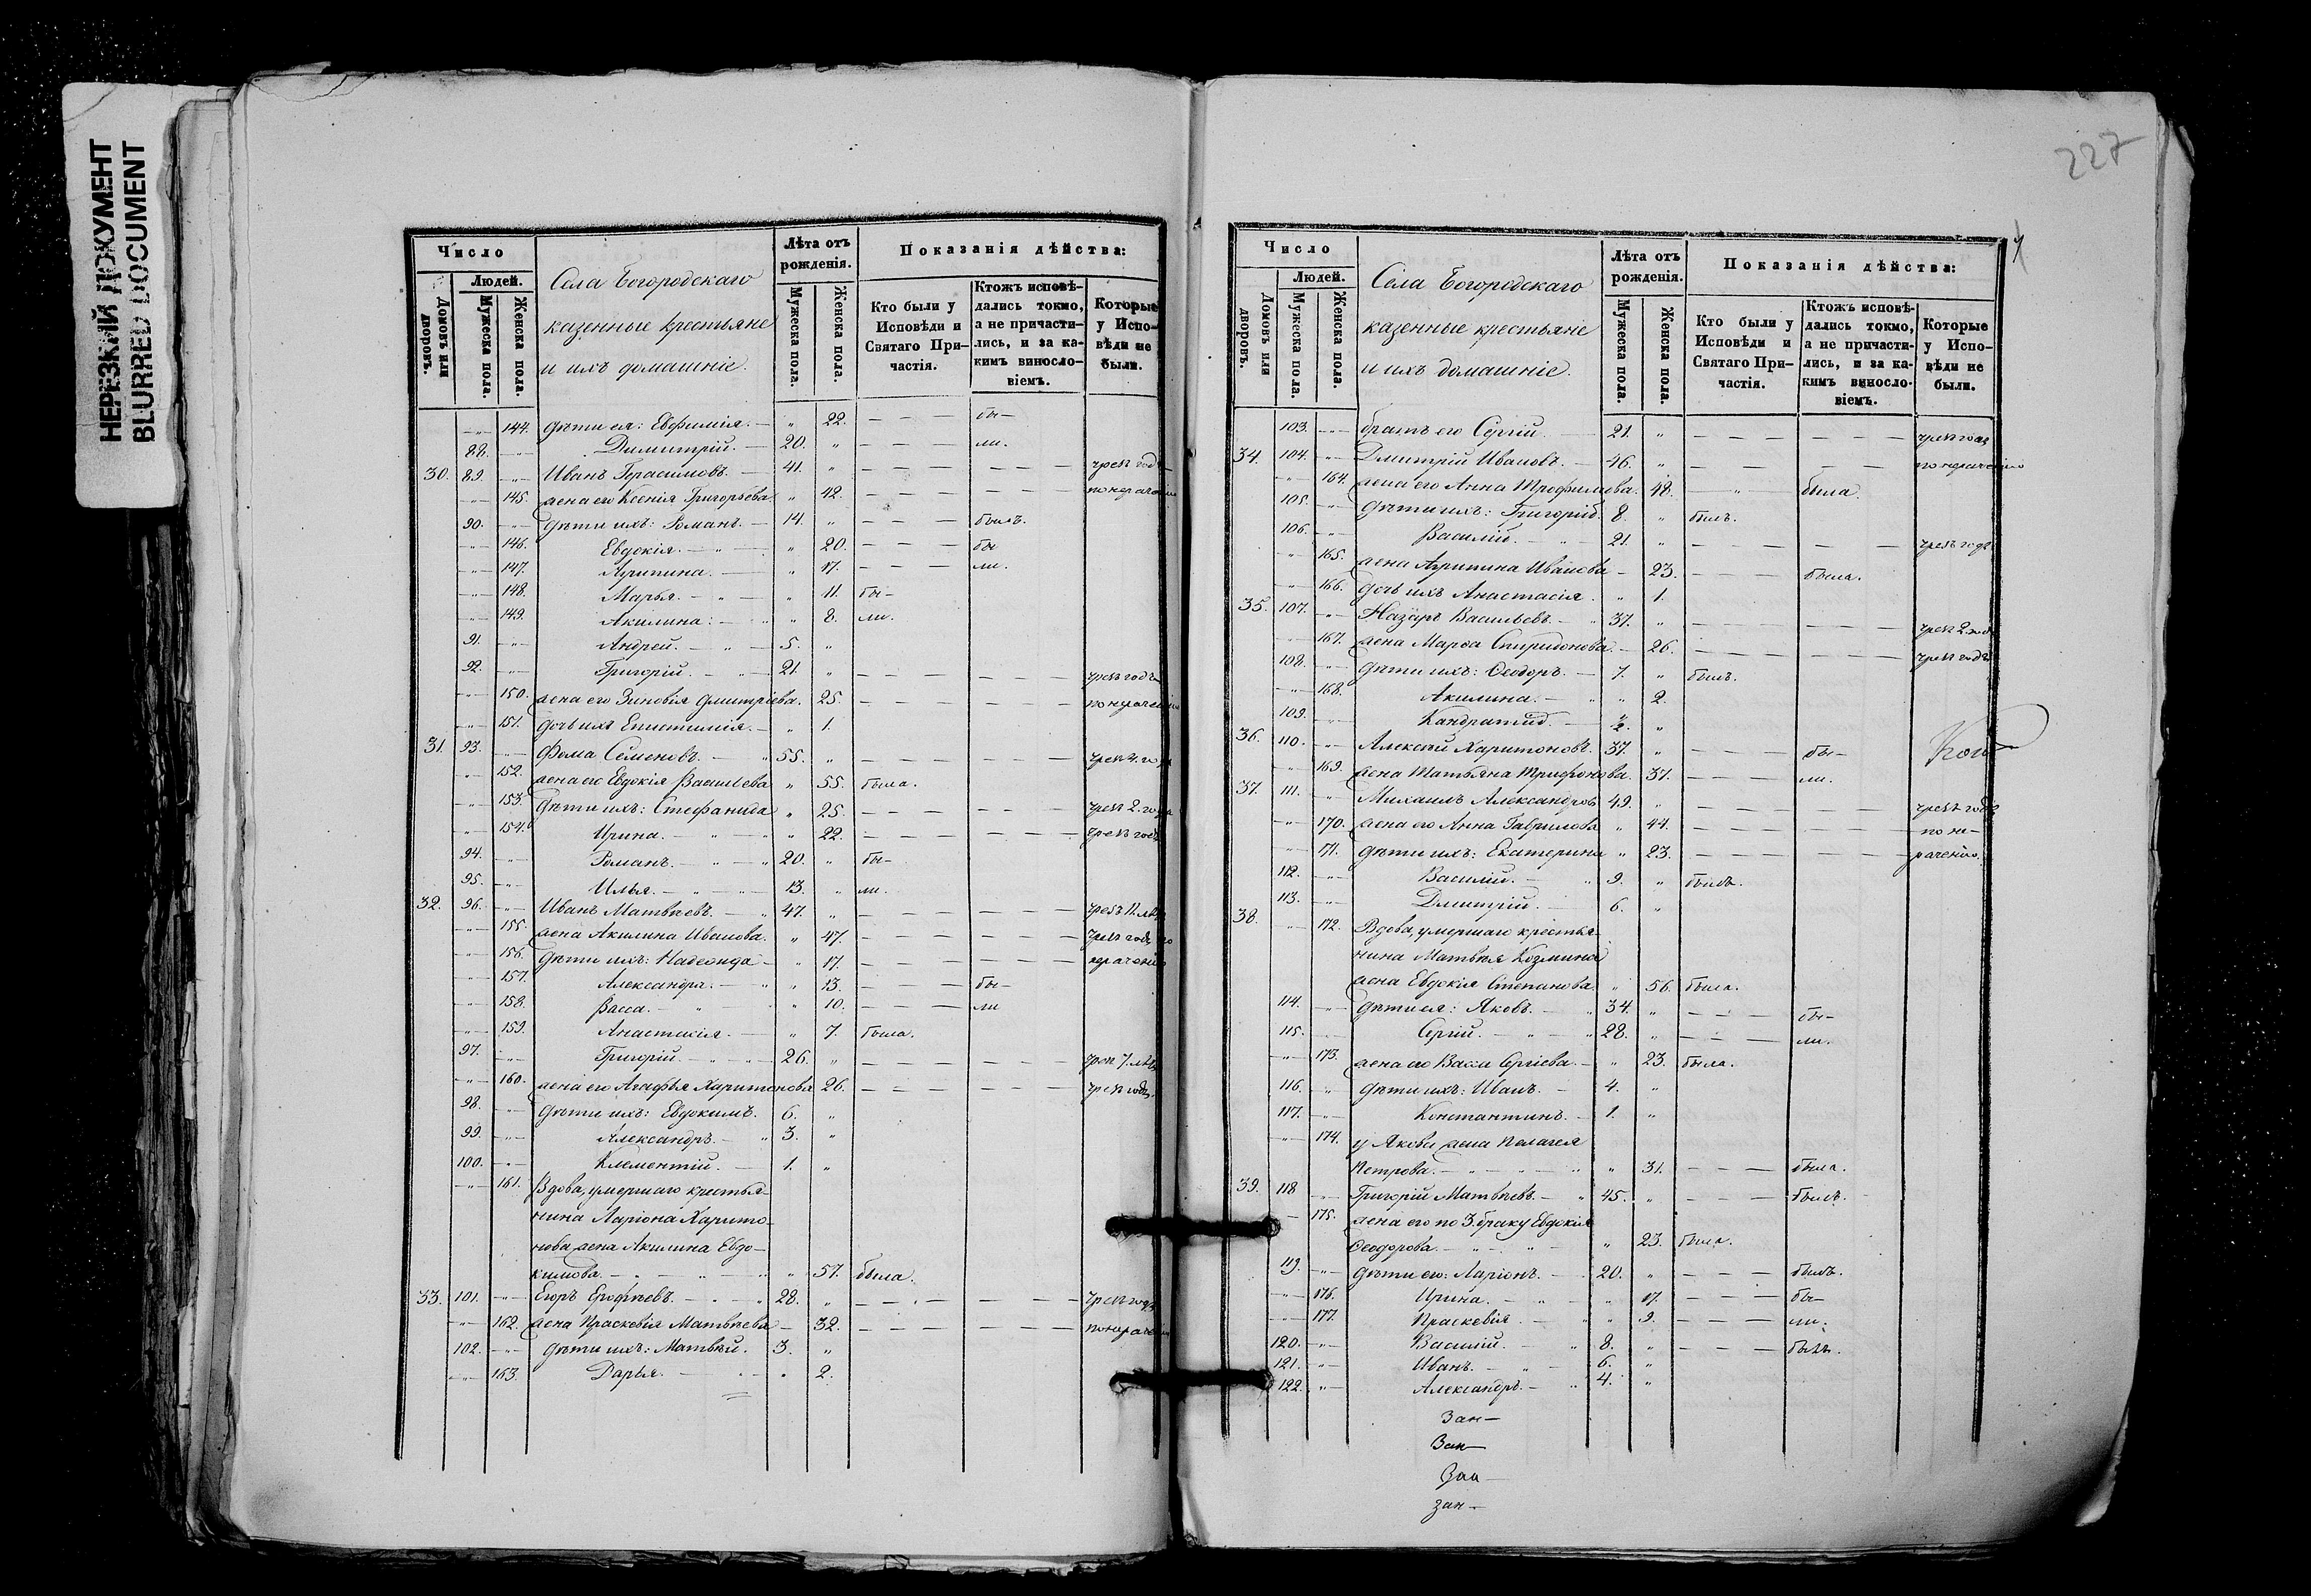 НЕРЕЗКИЙ ДОКУМЕНТ
BLURRED DOCUMENT
Число
Лѣта отъ рожденія.
Показанія дѣйства:
Домовъ или дворовъ.
Людей.
Мужеска пола.
Женска пола.
Села Богородскаго
казенные крестьяне
и ихъ домашніе.
Мужеска пола.
Женска пола.
Кто были у Исповѣди и Святаго Причастія.
Ктожъ исповѣдались токмо, а не причастились, и за какимъ винословіемъ.
Которые у Исповѣди не были.
144. дѣти ея: Евфимія. — " 22. — — — бы—
88. Димитрій. — 20. " — — — ли.
30. 89. Иванъ Герасимовъ. — 41. " — — — — — — чрезъ год
145. жена его Ксенія Григорьева " 42. — — — — — — по нерачен
90. дѣти ихъ: Романъ. — 14. " — — — былъ.
146. Евдокія. — " 20. — — — бы
147. Агрипина. — " 17. — — — ли.
148. Марья. — " — " 11. бы—
149. Акилина. — " 8. ли.
91. Андрей. — " — 5. "
92. Григорій. — " — 21. " — — — — — — чрезъ годъ
150. жена его Зиновія Дмитріева. 25. — — — — — — по нерачені
151. дочь ихъ Епистимія. — " 1.
31. 93. Фома Семеновъ. — " 55. " — — — — — — чрезъ 4. года
152. жена его Евдокія Васильева " 55. была.
153. дѣти ихъ: Стефанида " 25. — — — — — — чрезъ 2. года
154. Ирина. — " — " 22. — — — — — — чрезъ годъ
94. Романъ. — " — " 20. " бы—
95. Илья. — " — " — 13. " ли.
32. 96. Иванъ Матвѣевъ. — " 47. " — — — — — — чрезъ 11. лѣт
155. жена Акилина Иванова. " 47. — — — — — — чрезъ годъ по
156. дѣти ихъ: Надежда — " 17. — — — — — — нерачению
157. Александра. — " 13. — — — бы—
158. Васса. — " " 10. — — — ли
159. Анастасія. — " 7. была.
97. Григорій. — " — " — 26. " — — — — — — чрезъ 7. лѣт
160. жена его Агафья Харитонова 26. — — — — — — чрезъ годъ.
98. дѣти ихъ: Евдокимъ. 6. "
99. Александръ. — " 3. "
100. Клементій. — 1. "
161. Вдова, умершаго крестья—
нина Ларіона Харито—
нова жена Акилина Евдо—
кимова. — " — " — " " 57. была.
33. 101. Егоръ Ерофѣевъ. — " — " 28. " — — — — — чрезъ годъ
162. жена Праскевія Матвѣева — 32. — — — — — — по нерачен
102. дѣти ихъ: Матвѣй. 3. "
163. Дарья. — " — " 2.
227
Число
Лѣта отъ рожденія.
Показанія дѣйства:
Домовъ или дворовъ.
Людей.
Мужеска пола.
Женска пола.
Села Богородскаго
казенные крестьяне
и ихъ домашніе.
Мужеска пола.
Женска пола.
Кто были у Исповѣди и Святаго Причастія.
Ктожъ исповѣдались токмо, а не причастились, и за какимъ винословіемъ.
Которые у Исповѣди не были.
103. братъ его Сергій. — 21. " — — — — — — чрезъ годъ
34. 104. Дмитрій Ивановъ. — 46. " — — — — — — по нерачению
164. жена его Анна Трофимова. 48. — " — была.
105. дѣти ихъ: Григорій. 8. " былъ.
106. Василій. — " — 21. " — — — — — чрезъ годъ
165. жена Агрипина Иванова — 23. — — — была.
166. дочь ихъ Анастасія. " 1.
35. 107. Назаръ Васильевъ. — " 37. " — — — — — — чрезъ 2. года
167. жена Марѳа Спиридонова. — 26. — — — — — — чрезъ годъ
108. дѣти ихъ: Ѳеодоръ. — 7. " былъ.
168. Акилина. — " " 2.
109. Кандратій. — 2. "
36. 110. Алексѣй Харитоновъ. 37. " — — — бы—
169. жена Татьяна Трифонова. 37. — — — ли.
37. 111. Михаилъ Александровъ 49. " — — — — — — чрезъ годъ
170. жена его Анна Гаврилова " 44. — — — — — — по не—
171. дѣти ихъ: Екатерина " 23. — — — — — — рачению.
112. Василій. — " 9. " былъ.
113. Дмитрій. — 6. "
38. 172. Вдова, умершаго крестья—
нина Матвѣя Козмина
жена Евдокія Степанова. " 56. была.
114. дѣти ея: Яковъ. — " 34. " — — — бы—
115. Сергій. — " — " 28. " — — — ли.
173. жена его Васса Сергіева. — " 23. была.
116. дѣти ихъ: Иванъ. — 4. "
117. Константинъ. — 1. "
174. у Якова жена Пелагея
Петрова. — " — " — " " 31. — — — была.
39. 118 Григорій Матвѣевъ. — " 45. " — — — былъ.
175. жена его по 3. браку Евдокія
Ѳеодорова. — " — " — " 23. была.
119. дѣти его: Ларіонъ. — 20. " — — — былъ.
176. Ирина. — " — " 17. — — — бы—
177. Праскевія. — " " 9. — — — ли.
120. Василій. — " 8. " — — — былъ.
121. Иванъ. — " — 6. "
122. Александръ. — " 4. "